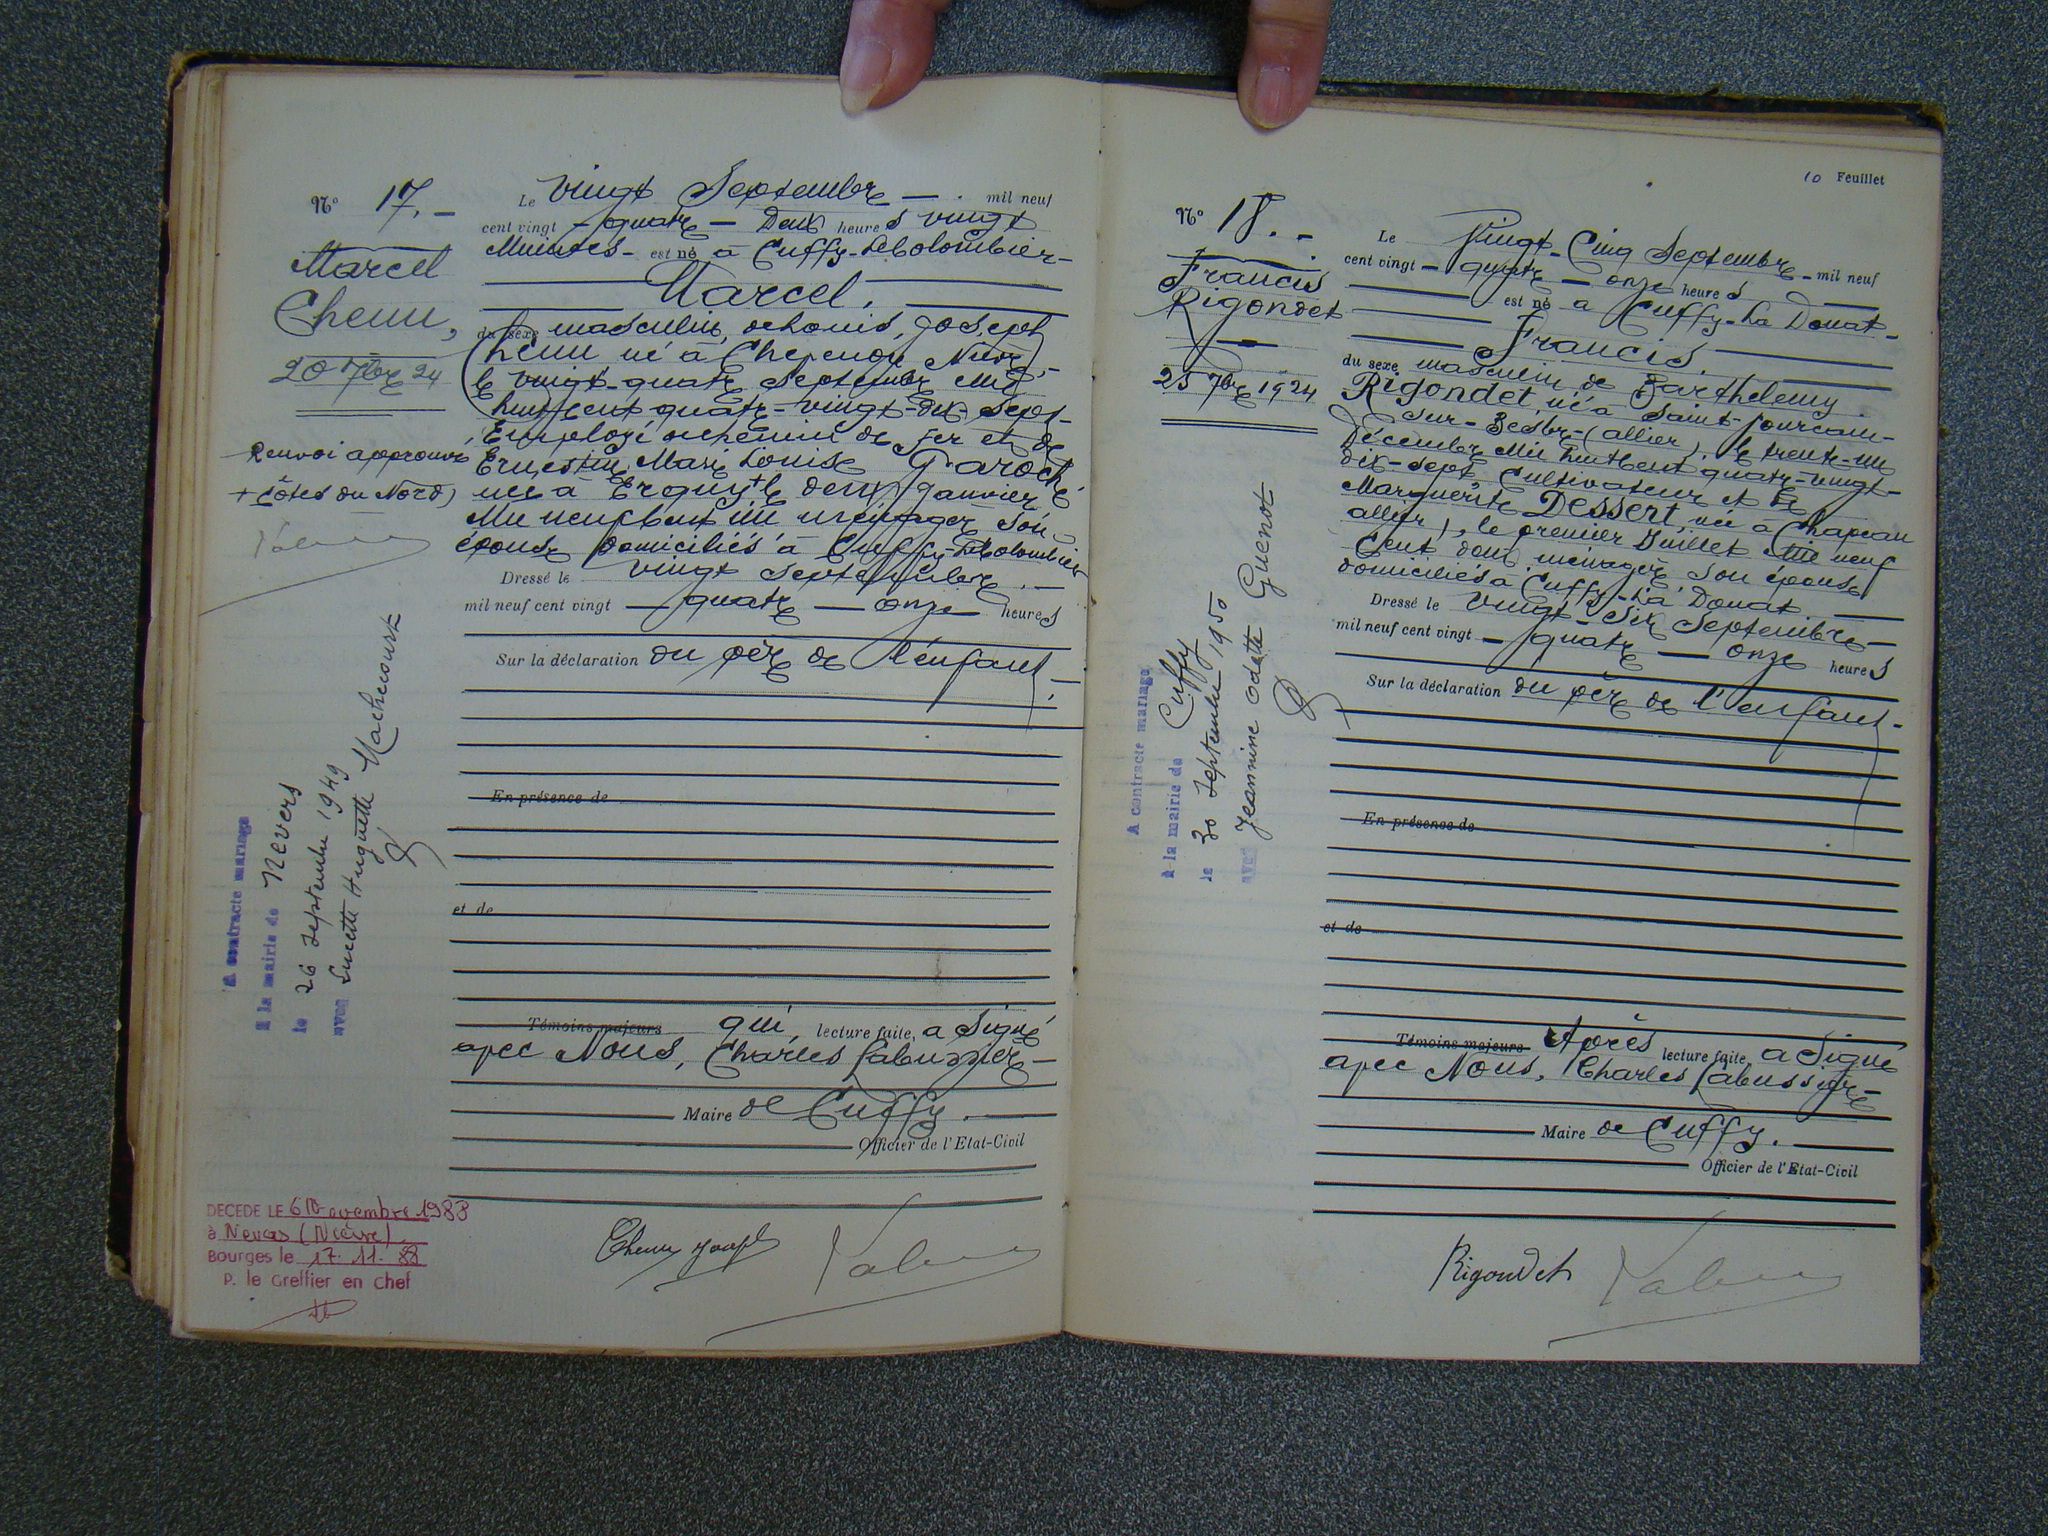 N° 17. -
Marcel
Chenu,
20 7bre 24
Renvoi approuvé
+ Côtes du Nord)
A contracté mariage
à la mairie de Nevers
le 26 septembre 1949
avec Lucette Huguette Machecourt
DECEDE LE 6 Novembre 1983
à Nevers (Nièvre)
Bourges le 17. 11. 88
P. le Greffier en Chef
Le vingt Septembre - mil neuf
cent vingt - quatre - Deux heures vingt
Minutes - est né à Cuffy-Le Colombier -
Marcel.
du sexe masculin, de Louis, Joseph
Chenu né à Chevenon Nièvre,
le vingt-quatre septembre Mil
huit cent quatre-vingt-dix-sept
Employé au chemin de fer et de
Ernestine, Marie Louise Garoché
née à Erquy + le deux Janvier
Mil neuf cent un ménagère son
épouse domiciliés à Cuffy-Le Colombier
Dressé le vingt septembre. -
mil neuf cent vingt - quatre - onze heures
Sur la déclaration du père de l'enfant. -
En présence de
et de
Témoins majeurs qui, lecture faite, a Signé
avec Nous, Charles Labussière -
Maire de Cuffy. -
Officier de l'Etat-Civil
Chenu Joseph
10 Feuillet
N° 18. -
Francis
Rigondet
25 7bre 1924
A contracté mariage
à la mairie de Cuffy
le 30 septembre 1950
avec Jeannine Odette Guenot
Le Vingt-Cinq Septembre - mil neuf
cent vingt - quatre - onze heures
est né à Cuffy-La Douat -
Francis.
du sexe masculin de Barthelemy
Rigondet né à Saint-Pourcain-
sur-Besbre-(allier), le trente-un
Décembre Mil huit cent quatre-vingt-
dix-sept Cultivateur et de
Marguerite Dessert, née à Chapeau
allier), le premier Juillet Mil neuf
Cent deux, ménagère son épouse
domiciliés à Cuffy-La Douat
Dressé le vingt-Six Septembre -
mil neuf cent vingt - quatre - onze heures
Sur la déclaration du père de l'enfant -
En présence de
et de
Témoins majeurs Après lecture faite, a Signé
avec Nous, Charles Labussière -
Maire de Cuffy.
Officier de l'Etat-Civil
Rigondet